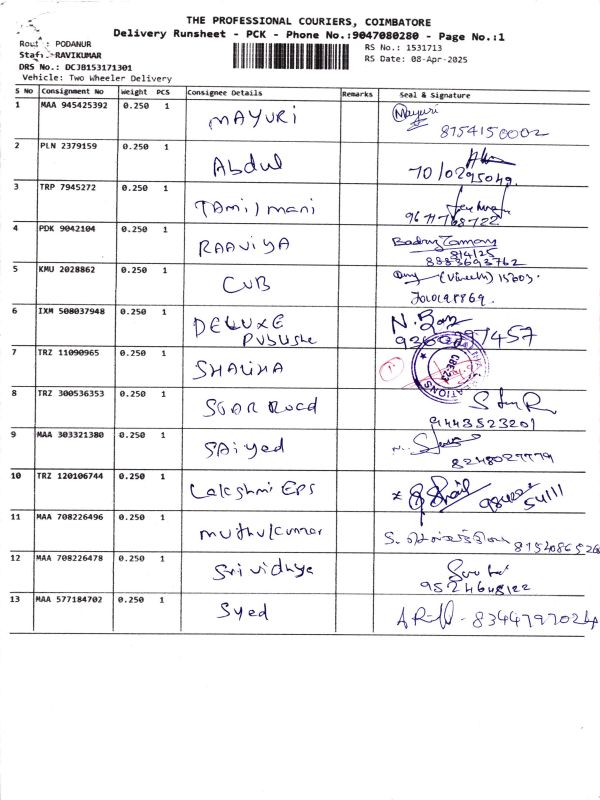 THE PROFESSIONAL COURIERS, COIMBATORE
Delivery Runsheet - PCK - Phone No.:9047080280 - Page No.:1
Route: PODANUR
RS No.: 1531713
Staff: RAVIKUMAR
RS Date: 08-Apr-2025
DRS No.: DCJB153171301
Vehicle: Two Wheeler Delivery
S No Consignment No Weight PCS Consignee Details Remarks Seal & Signature
1 MAA 945425392 0.250 1 MAYURI Mayuri
8754150002
2 PLN 2379159 0.250 1 Abdul
3 TRP 7945272 0.250 1 Tamilmani
9677768722
4 PDK 9042104 0.250 1 RAAVIYA Badruz Zamany
8/4/25
8883693762
5 KMU 2028862 0.250 1 CUB (Vineeth) 15603.
6 IXM 508037948 0.250 1 DELUXE
Publishe
7 TRZ 11090965 0.250 1 SHALIHA
8 TRZ 300536353 0.250 1 SGAR Road
9443523201
9 MAA 303321380 0.250 1 SAIyed
8248027779
10 TRZ 120106744 0.250 1 Lakshmi EPS
54111
11 MAA 708226496 0.250 1 Muthukumar
8152086526
12 MAA 708226478 0.250 1 Srividhya
9524648122
13 MAA 577184702 0.250 1 Syed 8344797024